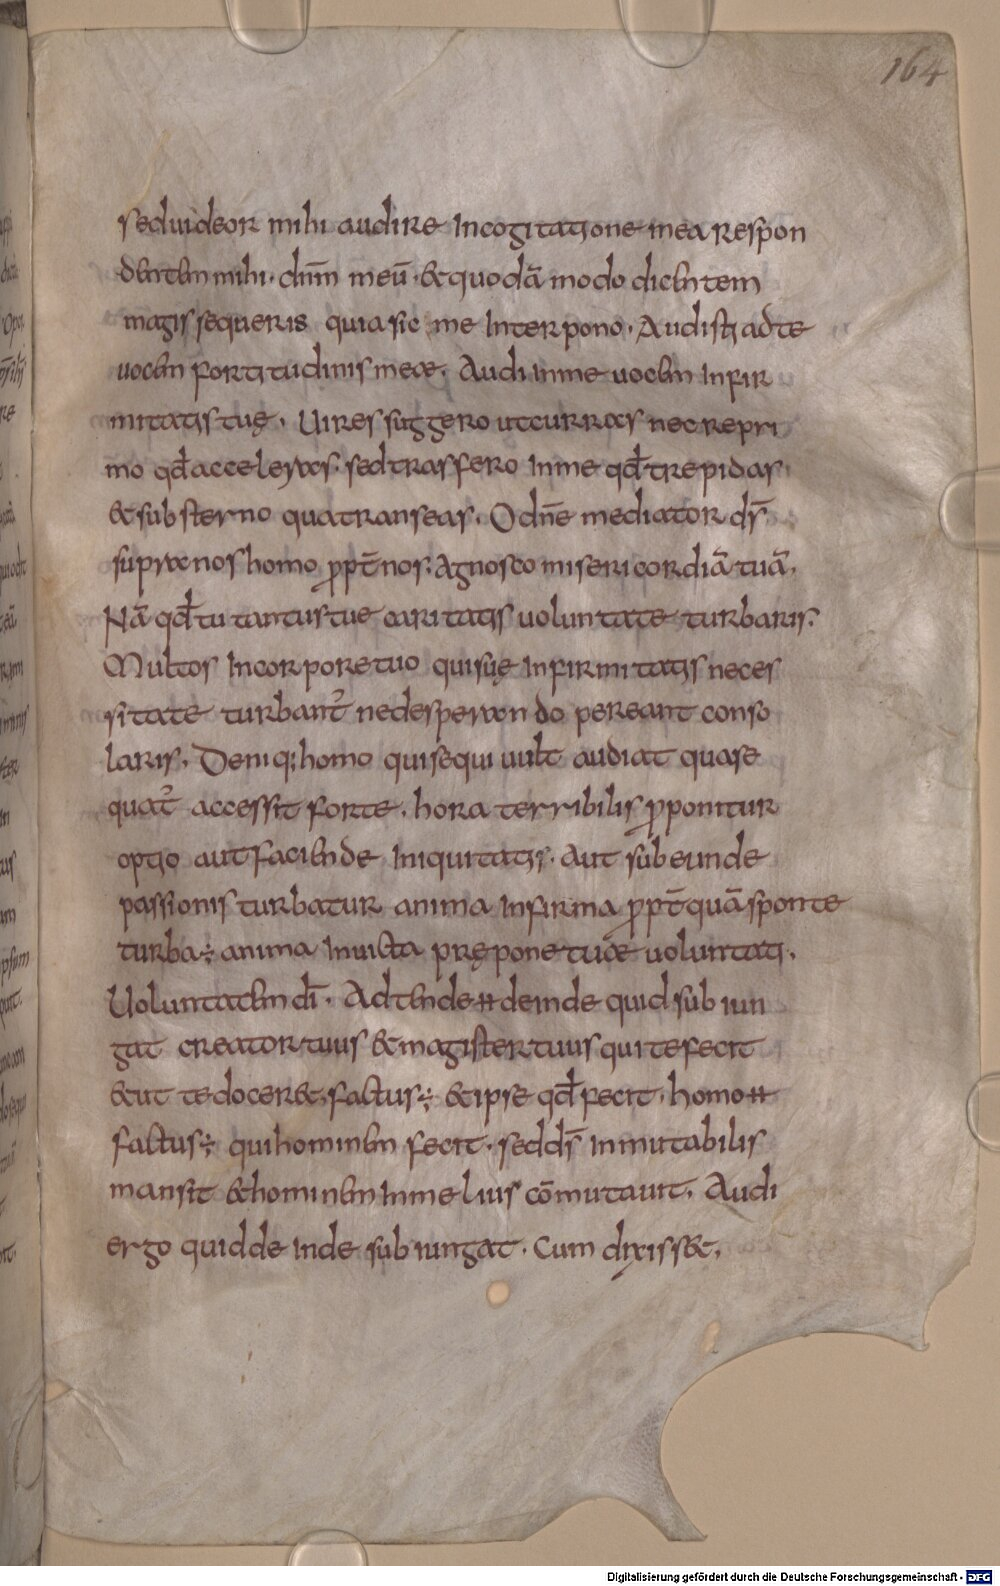 164
sed uideor mihi audire In cogitatione mea respon
dentem mihi · dnm̄ meū · & quodā modo dicentem
magis sequeris quia sic me Interpono · Audisti ad te
uocem fortitudinis meae. Audi In me uocem Infir
mitatis tuę · Uires suggero ut curras nec repri
mo qđ acceleras · sed trasfero In me qđ trepidas
& substerno qua transeas · O dn̄e mediator ds̄
supra nos homo ppt̄ nos · Agnosco misericordiā tuā ·
Nā qđ tu tantus tue caritatis uoluntate turbaris ·
Multos In corpore tuo qui suę Infirmitatis neces
sitate turbant̉ ne desperando pereant conso
laris · Deniq; homo qui sequi uult audiat qua se
quat̉ accessit forte · hora terribilis pponitur
optio aut faciende Iniquitatis · Aut subeunde
passionis turbatur anima Infirma ppt̄ quā sponte
turba÷ anima Inuicta prępone tuae uoluntati ·
Uoluntatem dī · Adtende H deinde quid sub iun
gat creator tuus & magister tuus qui te fecit
& ut te docer& · factus ÷ & ipse qđ fecit · homo H
factus ÷ qui hominem fecit · sed ds̄ Inmutabilis
mansit & hominem In melius cōmutauit · Audi
ergo quid de Inde subiungat · Cum dixiss& ·
Digitalisierung gefördert durch die Deutsche Forschungsgemeinschaft - DFG